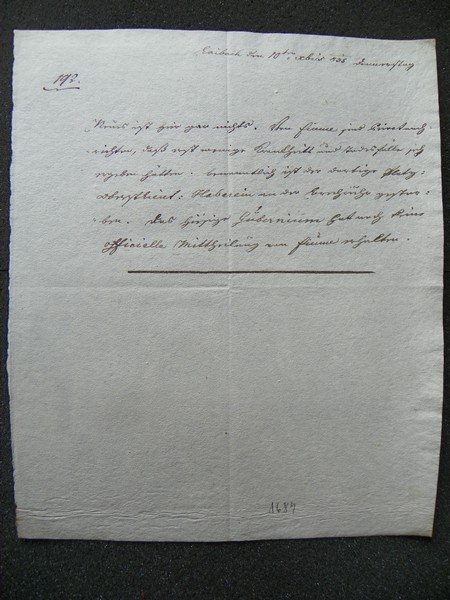 Laibach den 10ten Xbris 835 Donnerstag
192.
Neues ist hier gar nichts. Von Fiume sind Privatnach-
richten, daß erst wenige Krankheits und Todesfälle sich
ergeben hätten. Namentlich ist der dortige Platz-
oberstlieut: Haberein an der Brechruhr gestor-
ben. Das hiesige Gubernium hat noch keine
officielle Mittheilung von Fiume erhalten.
1689